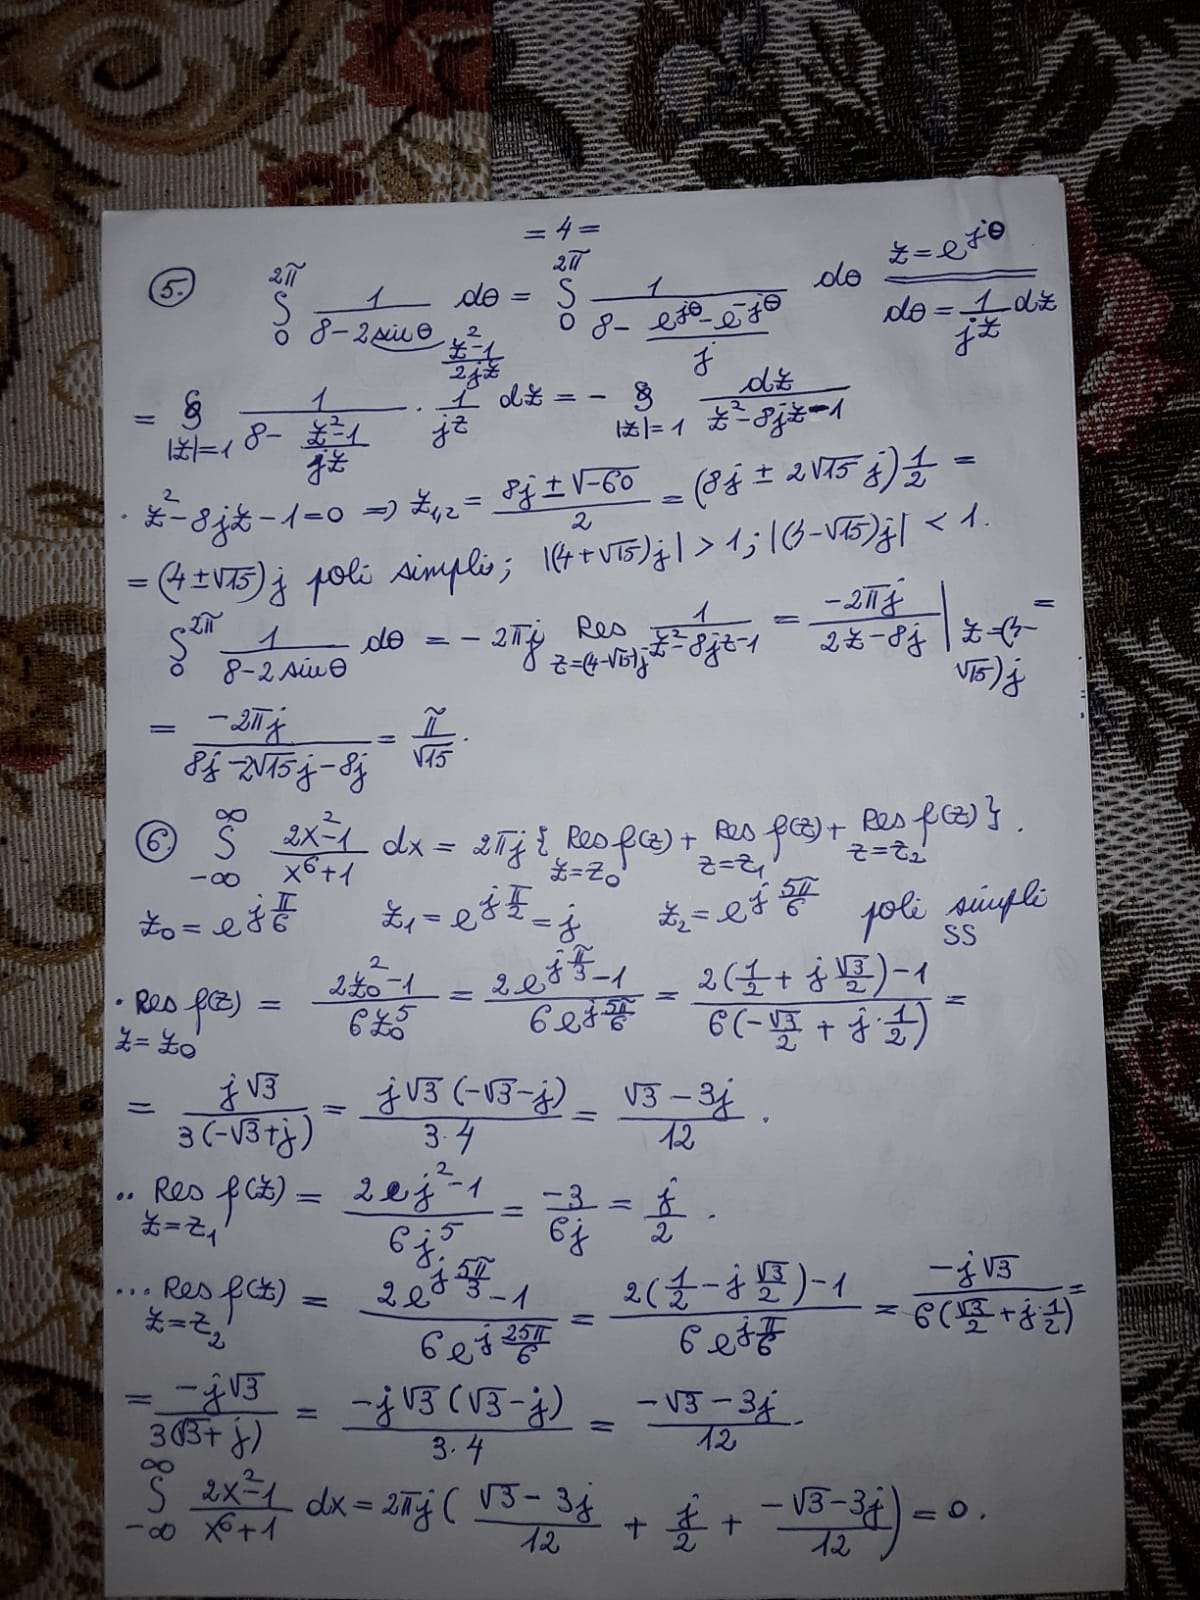 = 4 =
5. ∫₀^{2π} 1/(8-2sinθ) dθ = ∫₀^{2π} 1/(8-(e^{jθ}-e^{-jθ})/j) dθ z=e^{jθ} dθ=1/(jz) dz
(z²-1)/(2jz)
= ∮_{|z|=1} 1/(8-(z²-1)/(jz)) · 1/(jz) dz = -∮_{|z|=1} dz/(z²-8jz-1)
· z²-8jz-1=0 ⇒ z₁,₂ = (8j±√-60)/2 = (8j ± 2√15 j) 1/2 =
= (4±√15)j poli simpli; |(4+√15)j| > 1; |(4-√15)j| < 1.
∫₀^{2π} 1/(8-2sinθ) dθ = -2πj Res_{z=(4-√15)j} 1/(z²-8jz-1) = -2πj/(2z-8j) |_{z=(4-√15)j} =
= -2πj/(8j-2√15j-8j) = π/√15.
6. ∫_{-∞}^{∞} (2x²-1)/(x⁶+1) dx = 2πj{Res_{z=z₀} f(z) + Res_{z=z₁} f(z) + Res_{z=z₂} f(z)}.
z₀ = e^{jπ/6} z₁ = e^{jπ/2} = j z₂ = e^{j5π/6} poli simpli
SS
· Res_{z=z₀} f(z) = (2z₀²-1)/(6z₀⁵) = (2e^{jπ/3}-1)/(6e^{j5π/6}) = (2(1/2 + j√3/2)-1)/(6(-√3/2 + j·1/2)) =
= j√3/(3(-√3+j)) = j√3(-√3-j)/(3·4) = (√3-3j)/12.
·· Res_{z=z₁} f(z) = (2j²-1)/(6j⁵) = -3/(6j) = j/2.
··· Res_{z=z₂} f(z) = (2e^{j5π/3}-1)/(6e^{j25π/6}) = (2(1/2 - j√3/2)-1)/(6e^{jπ/6}) = -j√3/(6(√3/2 + j·1/2)) =
= -j√3/(3(√3+j)) = -j√3(√3-j)/(3·4) = (-√3-3j)/12.
∫_{-∞}^{∞} (2x²-1)/(x⁶+1) dx = 2πj((√3-3j)/12 + j/2 + (-√3-3j)/12) = 0.